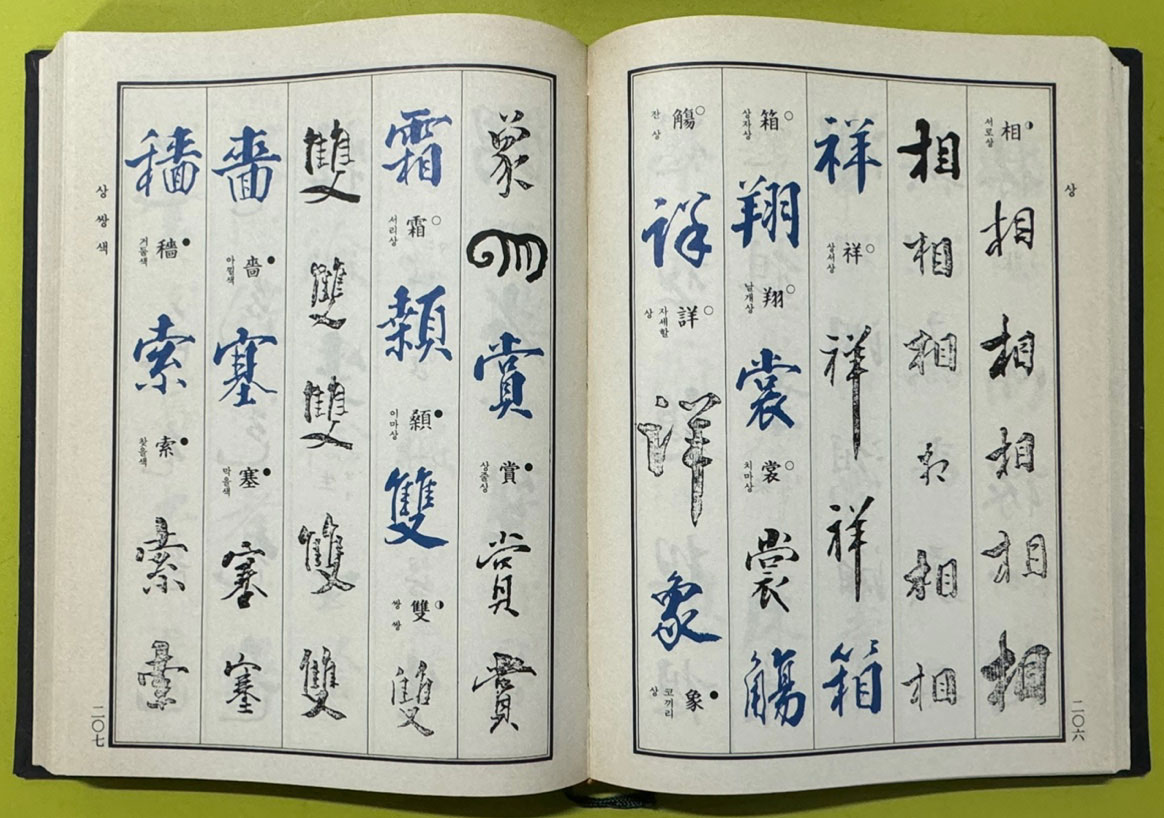 상
二〇六
相 서로상 相 相 相 相 相
相 相 相 相 相 相
祥 祥 상서상 祥 祥 箱
箱 상자상 翔 翔 날개상 裳 裳 치마상 裳 觴
觴 잔 상 詳 詳 자세할 상 詳 象 象 코끼리 상
象 象 賞 賞 상줄상 賞 賞
霜 霜 서리상 顙 顙 이마상 雙 雙 쌍 쌍 雙
雙 雙 雙 雙 雙
嗇 嗇 아낄색 塞 塞 막을색 塞 塞
穡 穡 거둘색 索 索 찾을색 索 索
상 쌍 색
二〇七